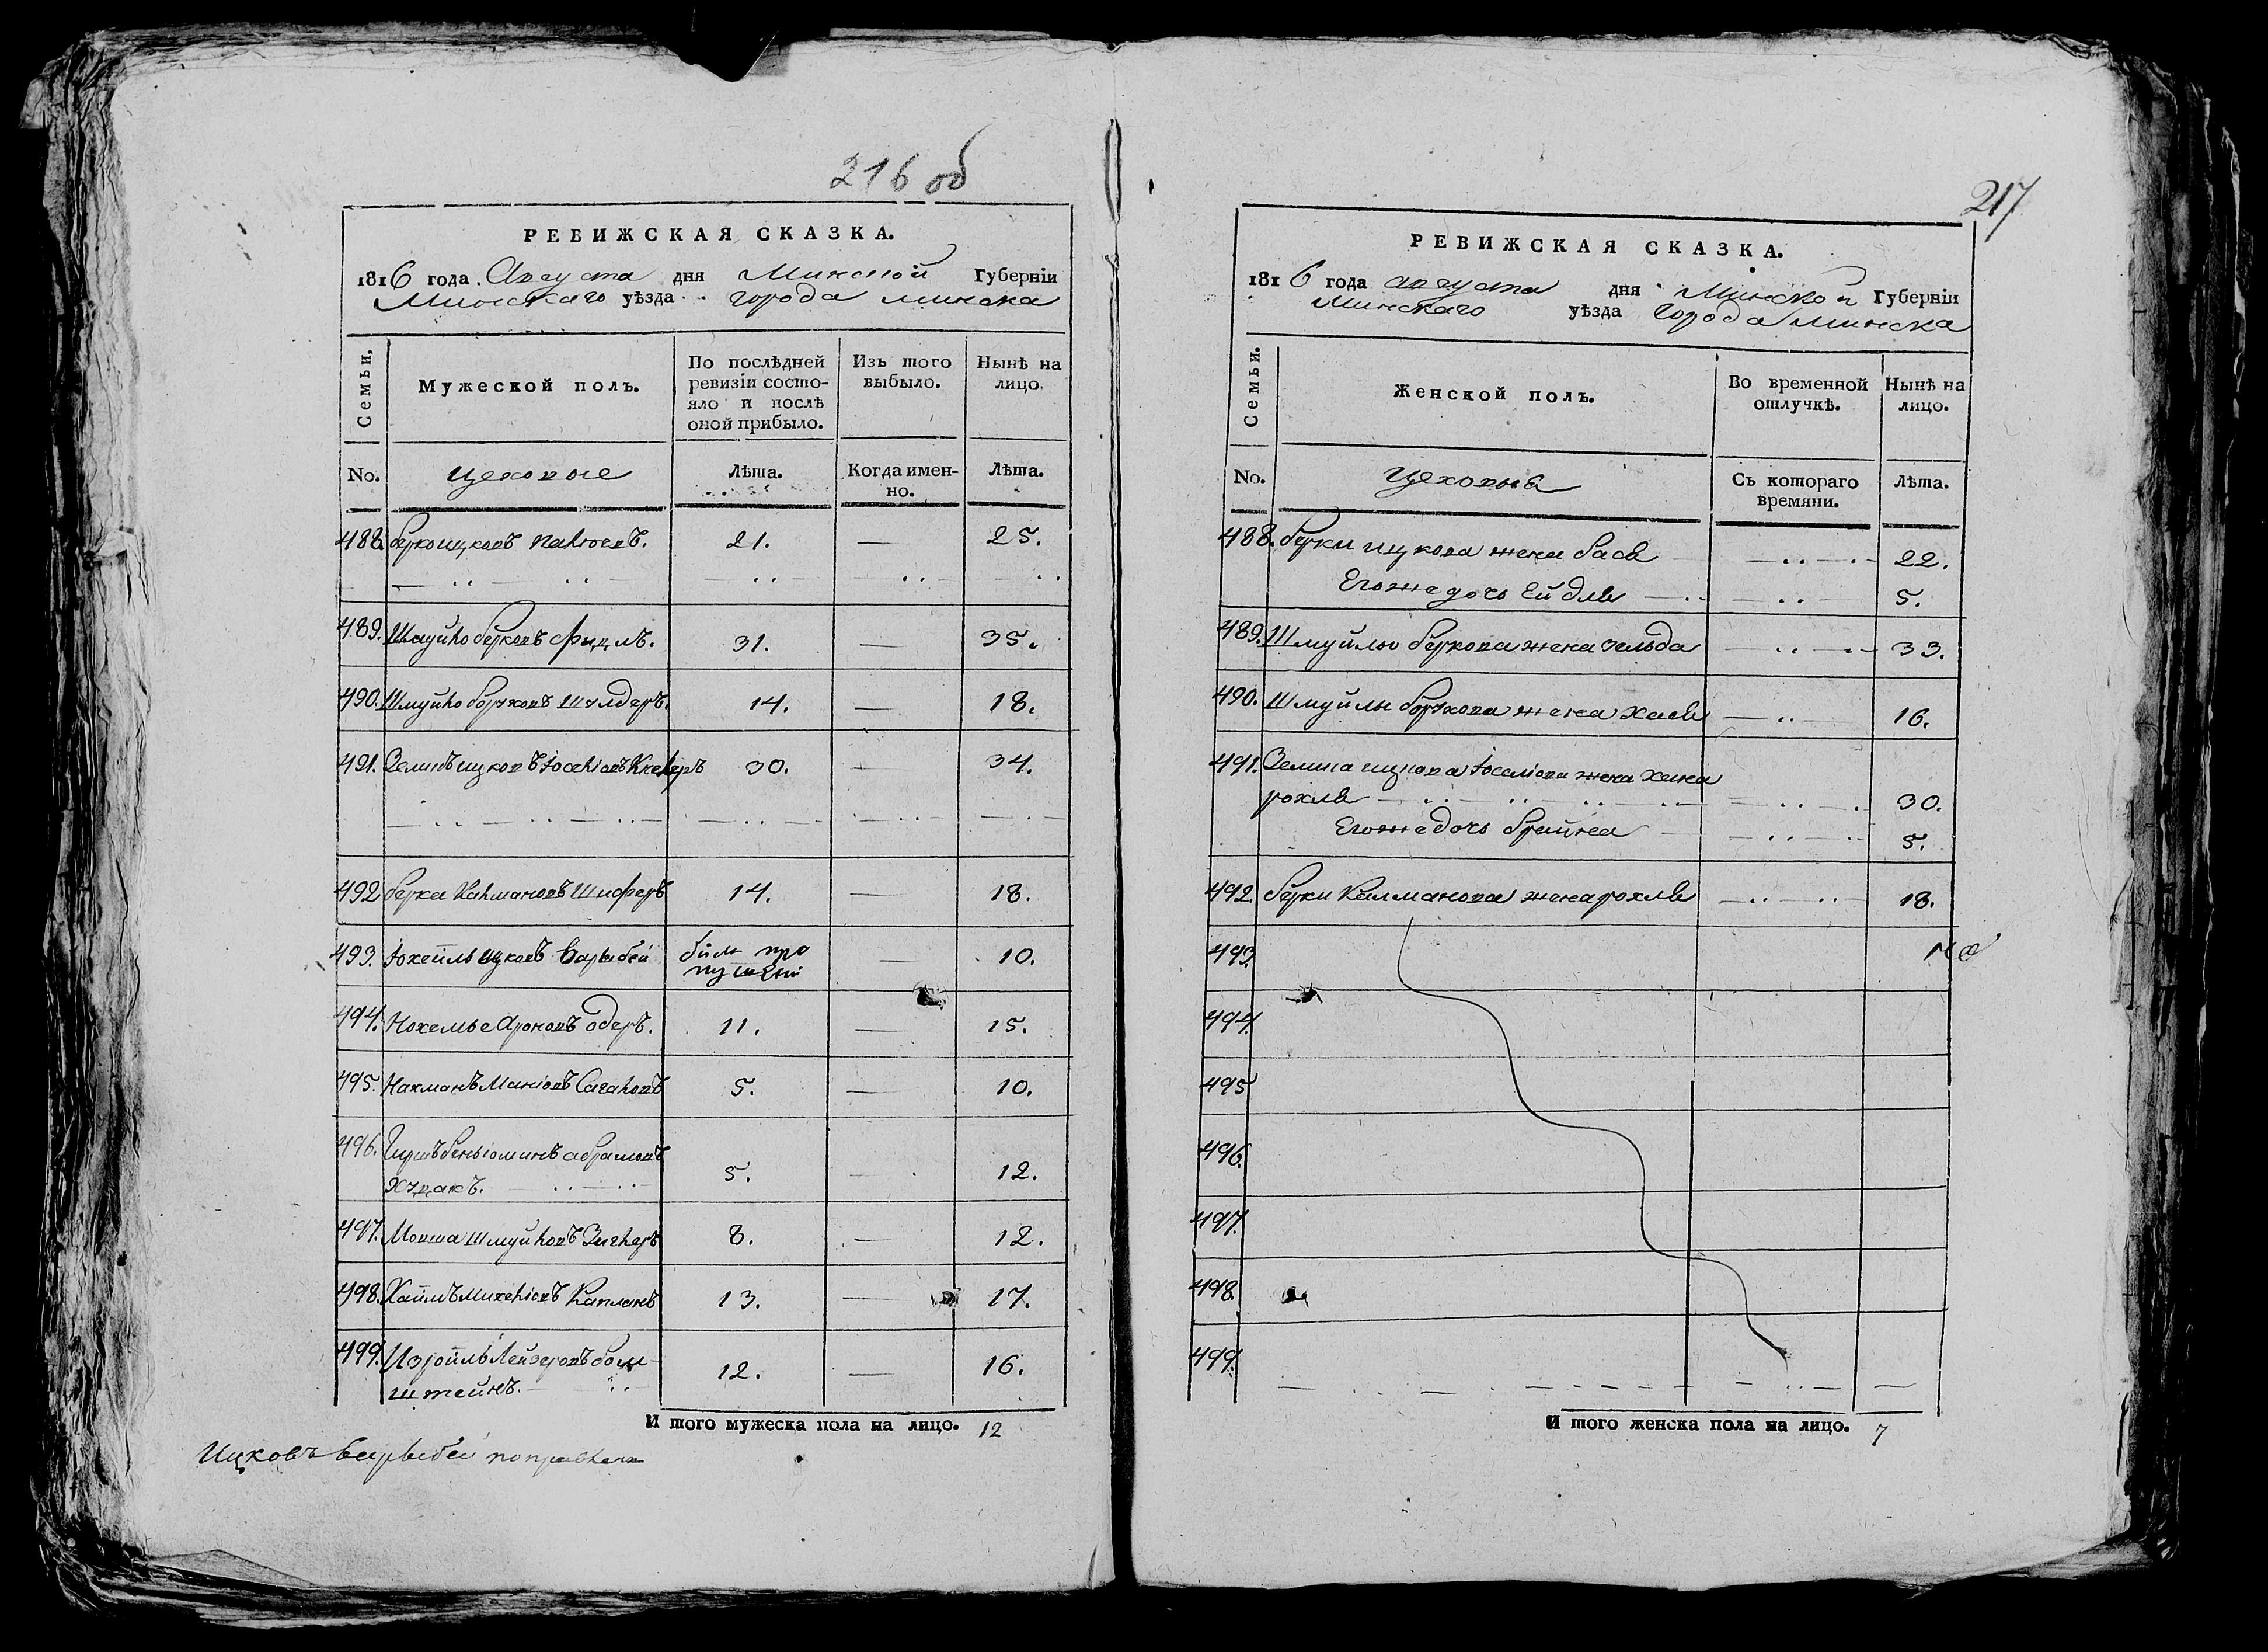 216 об
РЕВИЖСКАЯ СКАЗКА.
1816 года. Августа дня Минской Губерніи
Минскаго уѣзда города минска
Семьи.
Мужеской полъ.
По послѣдней
ревизіи состо-
яло и послѣ
оной прибыло.
Изъ того
выбыло.
Нынѣ на
лицо.
No.
цеховые
Лѣта.
Когда имен-
но.
Лѣта.
488. берко ицковъ 21. — 25.
489. берковъ 31. — 35.
490. Шмуйло 14. — 18.
491. Зелигъ ицковъ 30. — 34.
492 берка Калмановъ Шиферъ 14. — 18.
493. ицковъ барыбей были про
пущенъ — 10.
494. Ароновъ одеръ. 11. — 15.
495. Нахманъ 5. — 10.
496. Гиршъ беньюминъ абрамовъ
5. — 12.
497. Мовша Шмуйловъ 8. — 12.
498. Хаимъ Михеліовъ Капланъ 13. — 17.
499. Израиль Лейзеровъ
штейнъ. 12. — 16.
И того мужеска пола на лицо. 12
Ицковъ барыбей поправлена
217
РЕВИЖСКАЯ СКАЗКА.
1816 года августа дня Минской Губерніи
Минскаго уѣзда города минска
Семьи.
Женской полъ.
Во временной
отлучкѣ.
Нынѣ на
лицо.
No.
Цеховыя
Съ котораго
времяни.
Лѣта.
488. берки ицкова жена бася 22.
Егоже дочь Ейдля 5.
489. Шмуйлы беркова жена зельда 33.
490. Шмуйлы жена Хася 16.
491. Зелига ицкова жена Хана
рохля 30.
Егоже дочь брайна 5.
492. берки Калманова жена рохля 18.
493.
494.
495
496.
497.
498.
499.
И того женска пола на лицо. 7